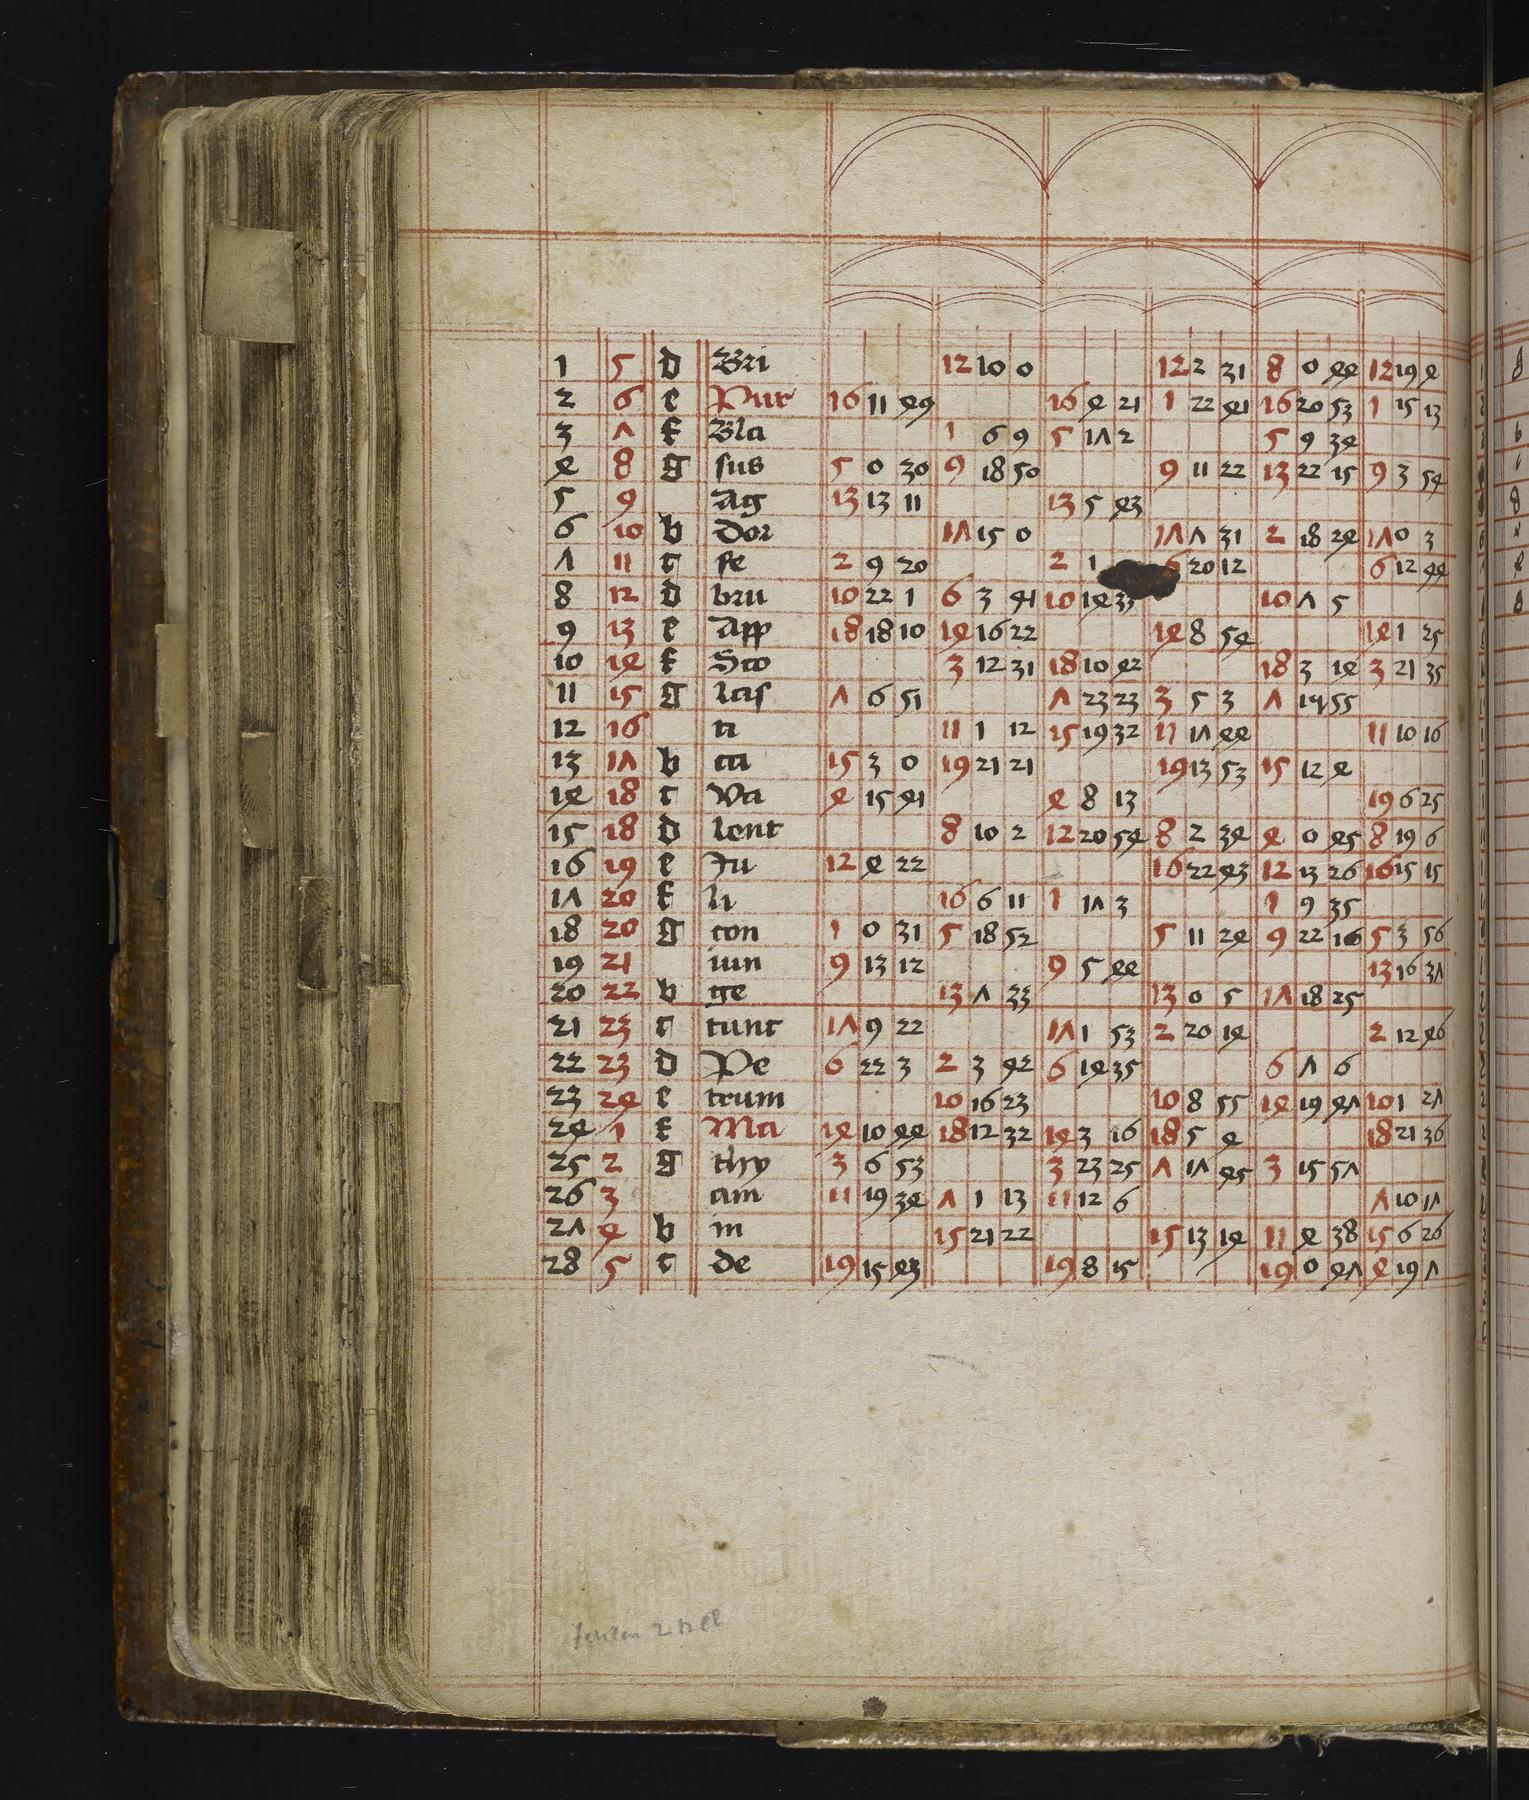 1 5 d Bri 12 10 0 12 2 31 8 0 44 12 19 4
2 6 e Pur 16 11 49 16 4 21 1 22 41 16 20 53 1 15 13
3 7 f Bla 1 6 9 5 17 2 5 9 34
4 8 g sus 5 0 30 9 18 50 9 11 22 13 22 15 9 3 54
5 9 Ag 13 13 11 13 5 43
6 10 b Dor 17 15 0 17 7 31 2 18 24 17 0 3
7 11 c fe 2 9 20 2 1 20 12 6 12 44
8 12 d bru 10 22 1 6 3 41 10 14 33 10 7 5
9 13 e App 18 18 10 14 16 22 14 8 54 14 1 25
10 14 f Sco 3 12 31 18 10 42 18 3 14 3 21 35
11 15 g las 7 6 51 7 23 23 3 5 3 7 15 55
12 16 ti 11 1 12 15 19 32 11 17 44 11 10 16
13 17 b ca 15 3 0 19 21 21 19 13 53 15 12 4
14 18 c Va 4 15 41 4 8 13 19 6 25
15 18 d lent 8 10 2 12 20 54 8 2 34 4 0 45 8 19 6
16 19 e Ju 12 4 22 16 22 43 12 13 26 16 15 15
17 20 f li 16 6 11 1 17 3 1 9 35
18 20 g con 1 0 31 5 18 52 5 11 24 9 22 16 5 3 56
19 21 iun 9 13 12 9 5 44 13 16 37
20 22 b ge 13 7 33 13 0 5 17 18 25
21 23 c tunc 17 9 22 17 1 53 2 20 14 2 12 46
22 23 d Pe 6 22 3 2 3 42 6 14 35 6 7 6
23 24 e trum 10 16 23 10 8 55 14 19 47 10 1 27
24 1 f Ma 14 10 44 18 12 32 14 3 16 18 5 4 18 21 36
25 2 g thy 3 6 53 3 23 25 7 17 45 3 15 57
26 3 am 11 19 34 7 1 13 11 12 6 7 10 17
27 4 b in 15 21 22 15 13 14 11 4 38 15 6 26
28 5 c de 19 15 43 19 8 15 19 0 47 4 19 7
fehlen 2